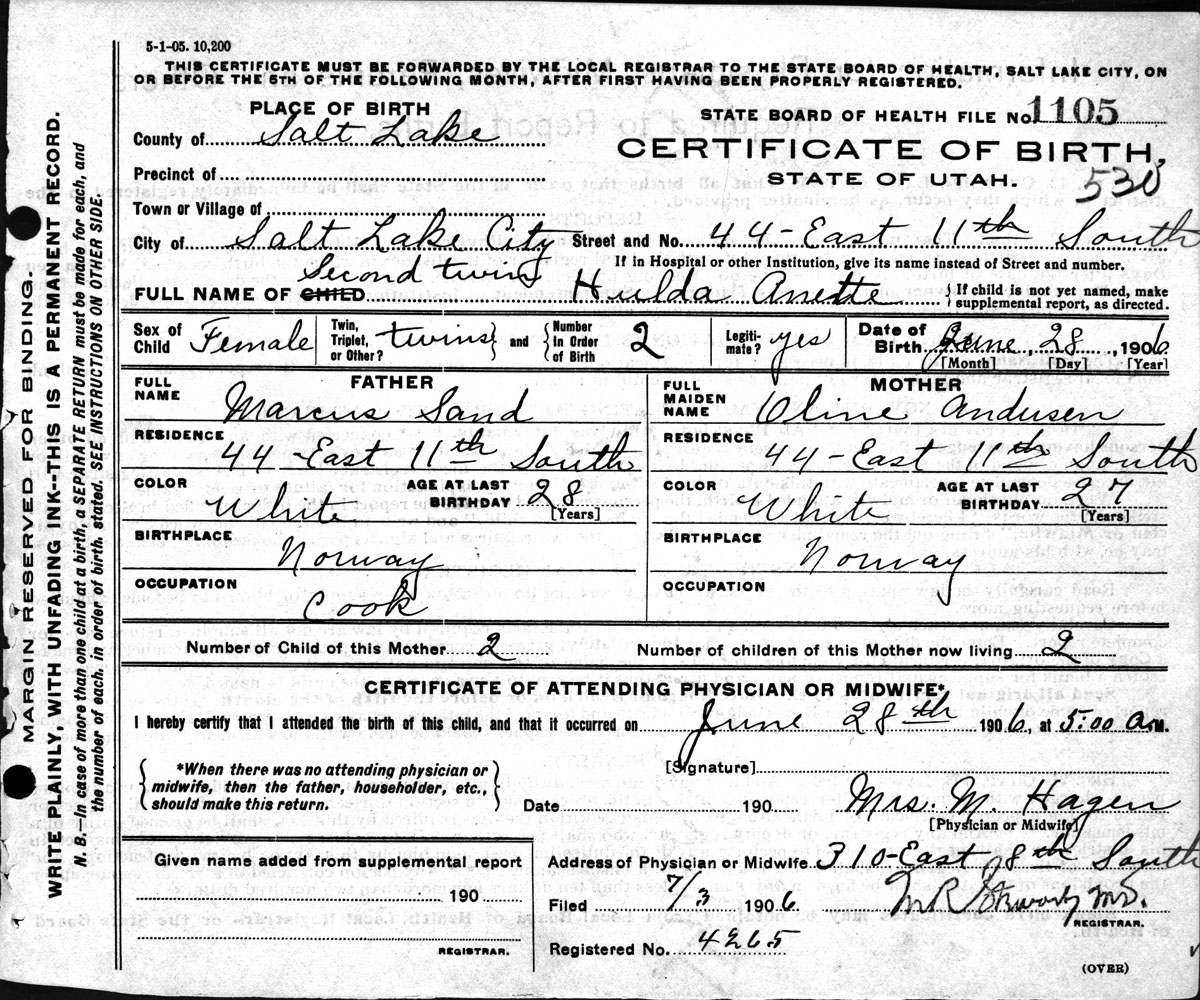 5-1-05. 10,200
THIS CERTIFICATE MUST BE FORWARDED BY THE LOCAL REGISTRAR TO THE STATE BOARD OF HEALTH, SALT LAKE CITY, ON
OR BEFORE THE 5TH OF THE FOLLOWING MONTH, AFTER FIRST HAVING BEEN PROPERLY REGISTERED.
PLACE OF BIRTH
STATE BOARD OF HEALTH FILE No. 1105
County of Salt Lake
CERTIFICATE OF BIRTH,
Precinct of
STATE OF UTAH.
530
Town or Village of
City of Salt Lake City Street and No. 44-East 11th South
If in Hospital or other Institution, give its name instead of Street and number.
Second twins
FULL NAME OF CHILD Hulda Anette { If child is not yet named, make supplemental report, as directed.
Sex of Child Female
Twin, Triplet, or Other? twins } and { Number In Order of Birth 2
Legitimate? yes
Date of Birth June, 28, 1906
[Month] [Day] [Year]
FATHER
FULL NAME Marcus Sand
RESIDENCE 44-East 11th South
COLOR White AGE AT LAST BIRTHDAY 28
[Years]
BIRTHPLACE Norway
OCCUPATION Cook
MOTHER
FULL MAIDEN NAME Oline Andersen
RESIDENCE 44-East 11th South
COLOR White AGE AT LAST BIRTHDAY 27
[Years]
BIRTHPLACE Norway
OCCUPATION
Number of Child of this Mother 2 Number of children of this Mother now living 2
CERTIFICATE OF ATTENDING PHYSICIAN OR MIDWIFE*
I hereby certify that I attended the birth of this child, and that it occurred on June 28th 1906, at 5:00 a.M.
{ *When there was no attending physician or midwife, then the father, householder, etc., should make this return. }
[Signature]
Date 190 Mrs. M. Hagen
[Physician or Midwife]
Given name added from supplemental report
190
REGISTRAR.
Address of Physician or Midwife 310-East 8th South
Filed 7/3 1906
REGISTRAR.
Registered No. 4265
(OVER)
MARGIN RESERVED FOR BINDING
WRITE PLAINLY, WITH UNFADING INK--THIS IS A PERMANENT RECORD.
N. B.—In case of more than one child at a birth, a SEPARATE RETURN must be made for each, and
the number of each, in order of birth, stated. SEE INSTRUCTIONS ON OTHER SIDE.